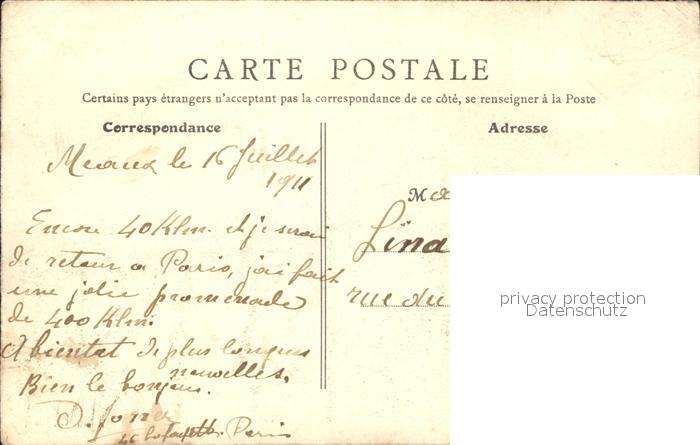 CARTE POSTALE
Certains pays étrangers n'acceptant pas la correspondance de ce côté, se renseigner à la Poste
Correspondance
Adresse
Meaux le 16 Juillet
1911
Encore 40 Klm. et je serai
de retour a Paris, j'ai fait
une jolie promenade
de 400 Klm.
A bientat de plus longues
nouvelles.
Bien le bonjour.
Paris
M
Lina
rue du
privacy protection
Datenschutz